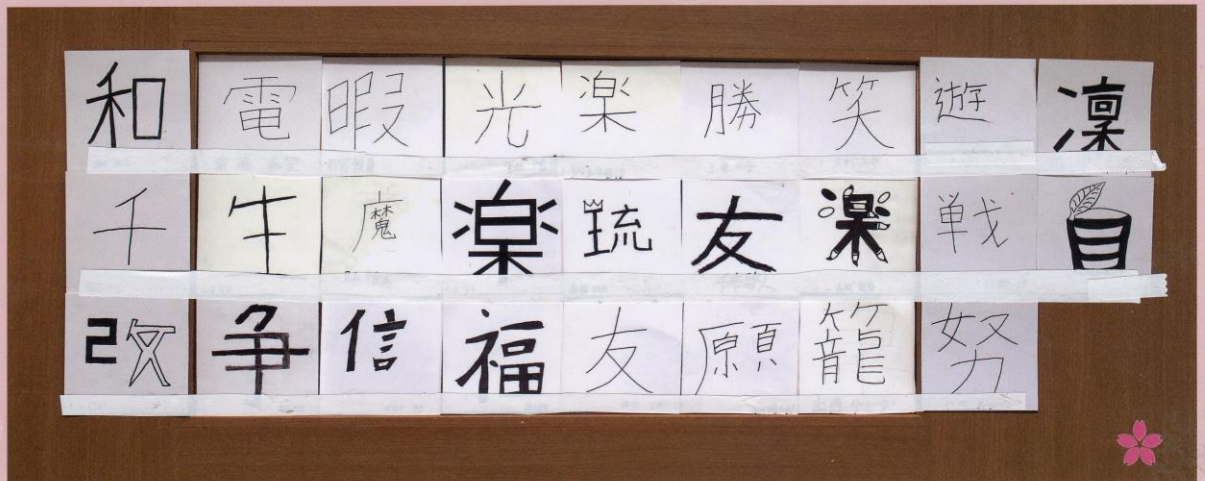 和 電 暇 光 楽 勝 笑 遊 凜
千 生 魔 楽 琉 友 楽 戦 自
改 争 信 福 友 願 籠 努